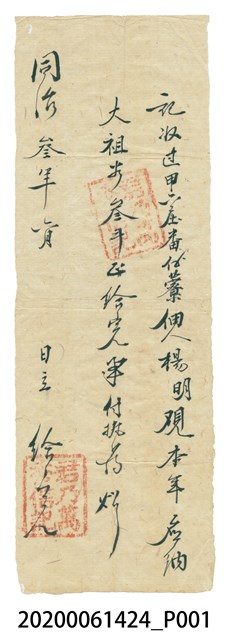 記收过甲六庄番仔藔佃人楊明觀本年应納
大租安叁斗正給完单付執為炤
同治叁年 月 日立 給完
君乃萬
20200061424_P001